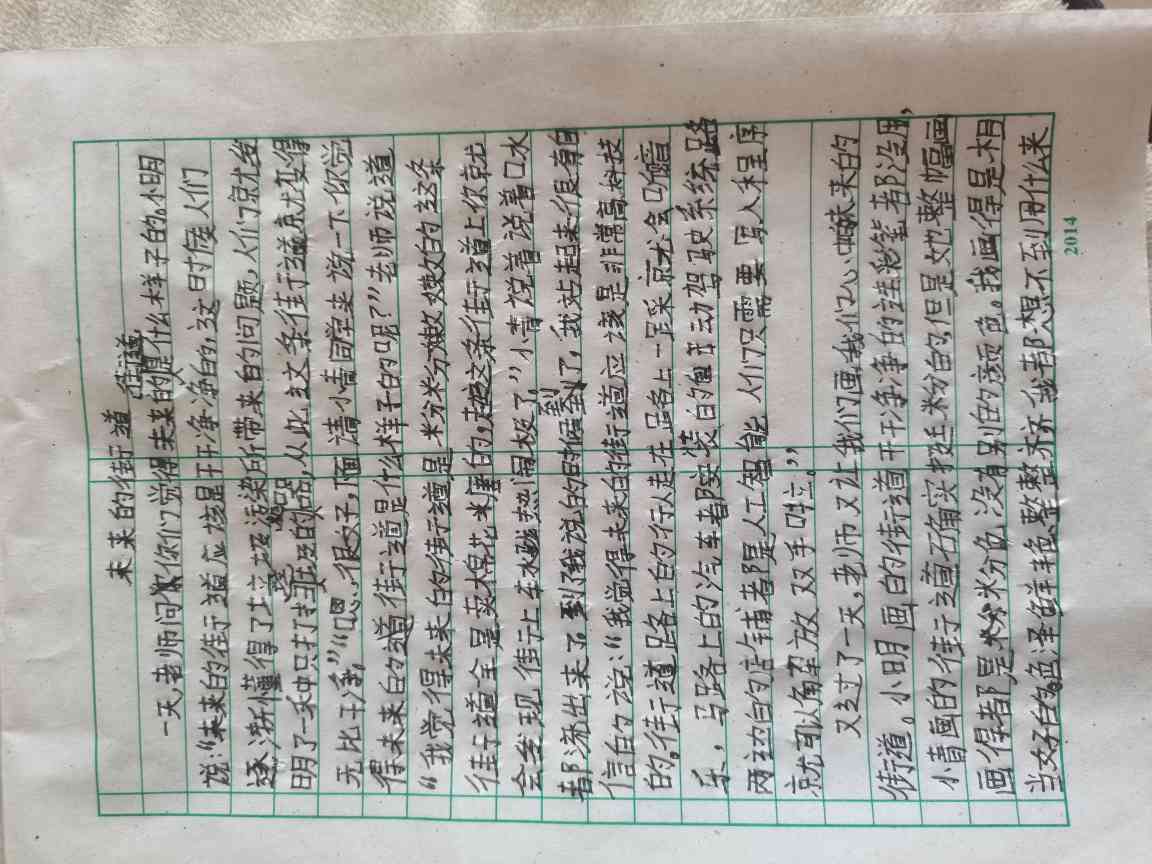 未来的街道 街道
一天,老师问你们觉得未来的是什么样子的。小明
说:“未来的街道应该是干干净净的,这时候人们
逐渐懂得了垃圾污染所带来的问题,人们就发
明了一种只打扫的机器,从此这条街道就变得
无比干净,”“嗯,很好,下面请小青同学来说一下你觉
得未来的道街道是什么样子的呢?”老师说道
“我觉得未来的街道,是粉粉嫩嫩的这条
街道全是卖棉花糖的,走这条街道上你就
会发现街上车水热闹极了”小青说着说着口水
都流出来了。到了我说的时候到了,我站起来很有自
信的说:“我觉得未来的街道应该是非常高科技
的。街道路上的行人走在路上一踩就会响音
乐,马路上的汽车都安装的自动驾驶系统路
两边的的店铺都是人工智能 人们只需要写入程序
就可以解放双手啦。”
又过了一天,老师又让我们画我们心中未来的
街道。小明画的街道干干净净的连彩笔都没用,
小青画的街道确实挺粉的,但是她整幅画
画得都是粉色 没有别的颜色。我画得是相
当好看的色泽鲜艳 整整齐齐 我都想不到用什么来
2014